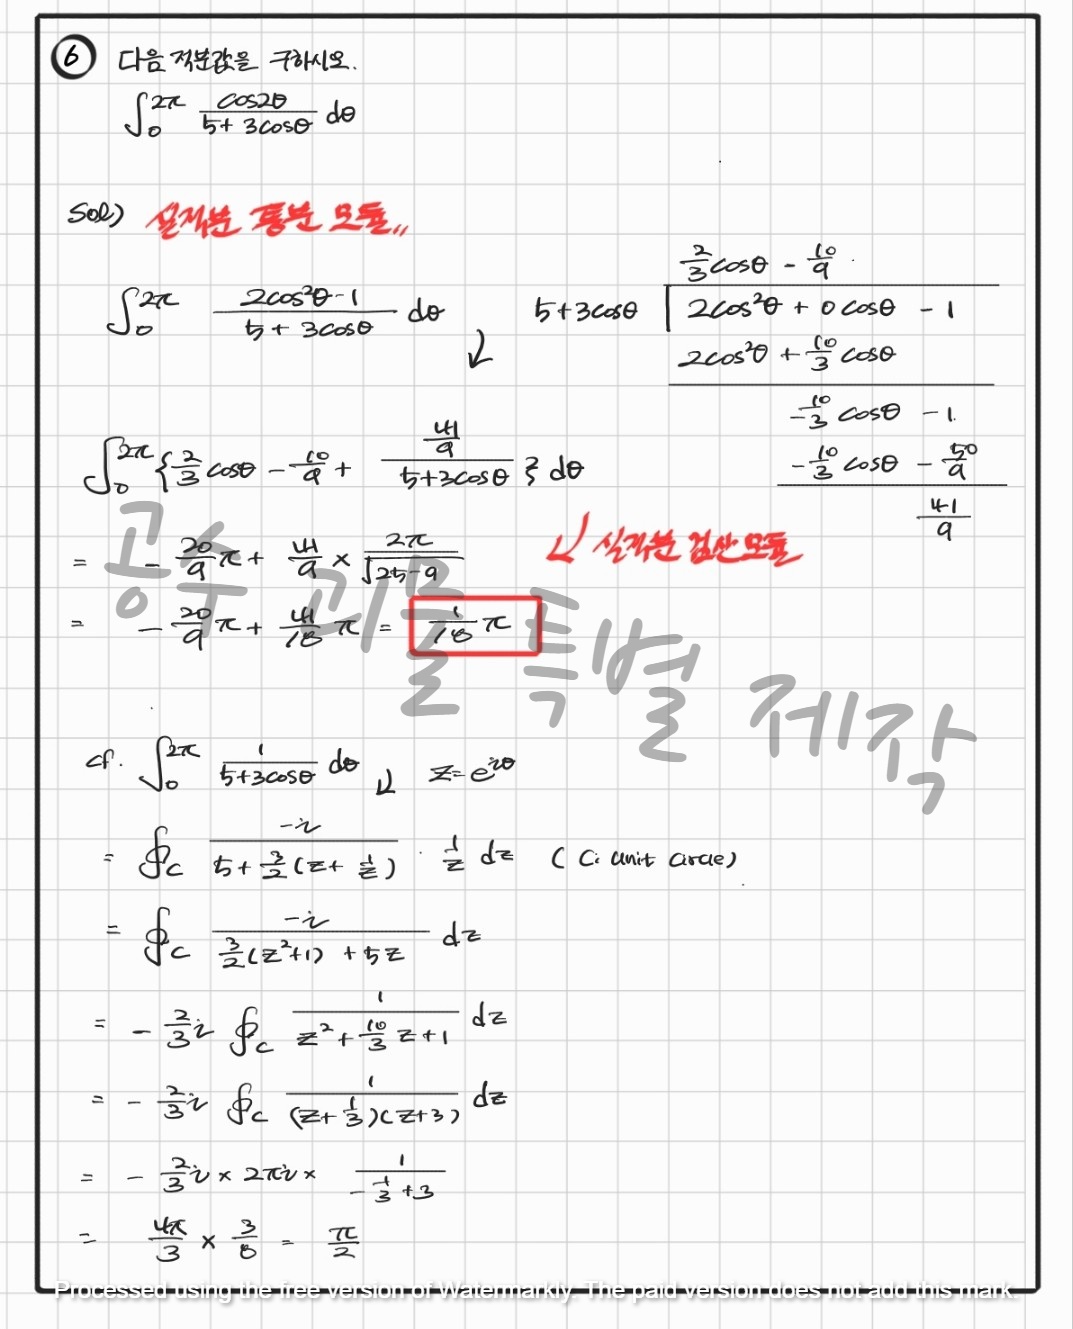 ⑥ 다음 적분값을 구하시오.
∫₀^{2π} cos2θ / (5+3cosθ) dθ
Sol) 실적분 통분 모듈..
∫₀^{2π} (2cos²θ-1) / (5+3cosθ) dθ ↓
2/3 cosθ - 10/9
5+3cosθ | 2cos²θ + 0cosθ - 1
2cos²θ + 10/3 cosθ
-10/3 cosθ - 1.
-10/3 cosθ - 50/9
41/9
∫₀^{2π} { 2/3 cosθ - 10/9 + (41/9) / (5+3cosθ) } dθ
↙ 실적분 검산 모듈
= - 20/9 π + 41/9 × 2π/√(25-9)
= - 20/9 π + 41/18 π = 1/18 π
공수 괴물 특별 제작
cf. ∫₀^{2π} 1 / (5+3cosθ) dθ ↓ z=e^{iθ}
= ∮_C -i / (5+3/2(z+1/z)) · 1/z dz ( C: unit circle)
= ∮_C -i / (3/2(z²+1) + 5z) dz
= - 2/3 i ∮_C 1 / (z² + 10/3 z + 1) dz
= - 2/3 i ∮_C 1 / ((z+1/3)(z+3)) dz
= - 2/3 i × 2πi × 1 / (-1/3 + 3)
= 4π/3 × 3/8 = π/2
Processed using the free version of Watermarkly. The paid version does not add this mark.